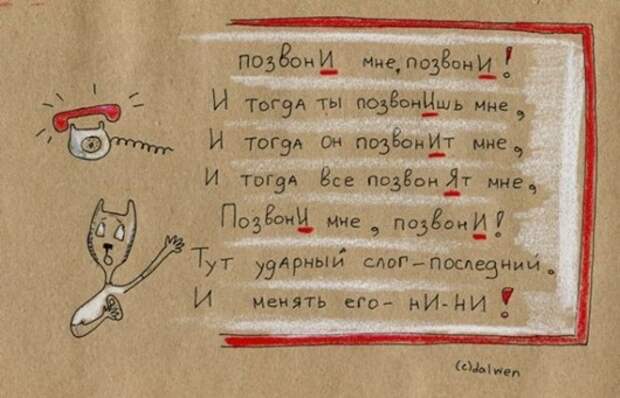 позвонИ мне, позвонИ!
И тогда ты позвонИшь мне,
И тогда он позвонИт мне,
И тогда все позвонЯт мне,
ПозвонИ мне, позвонИ!
Тут ударный слог-последний.
И менять его- нИ-НИ!
(c)dalwen